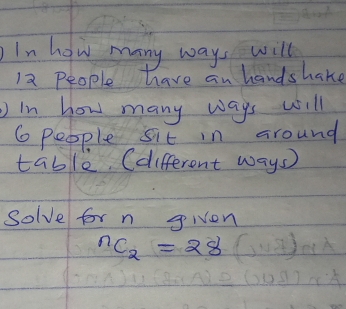 ) In how many ways will
12 people have an handshake
) In how many ways will
6 people sit in around
table. (different ways)
Solve for n given
ⁿC₂ = 28